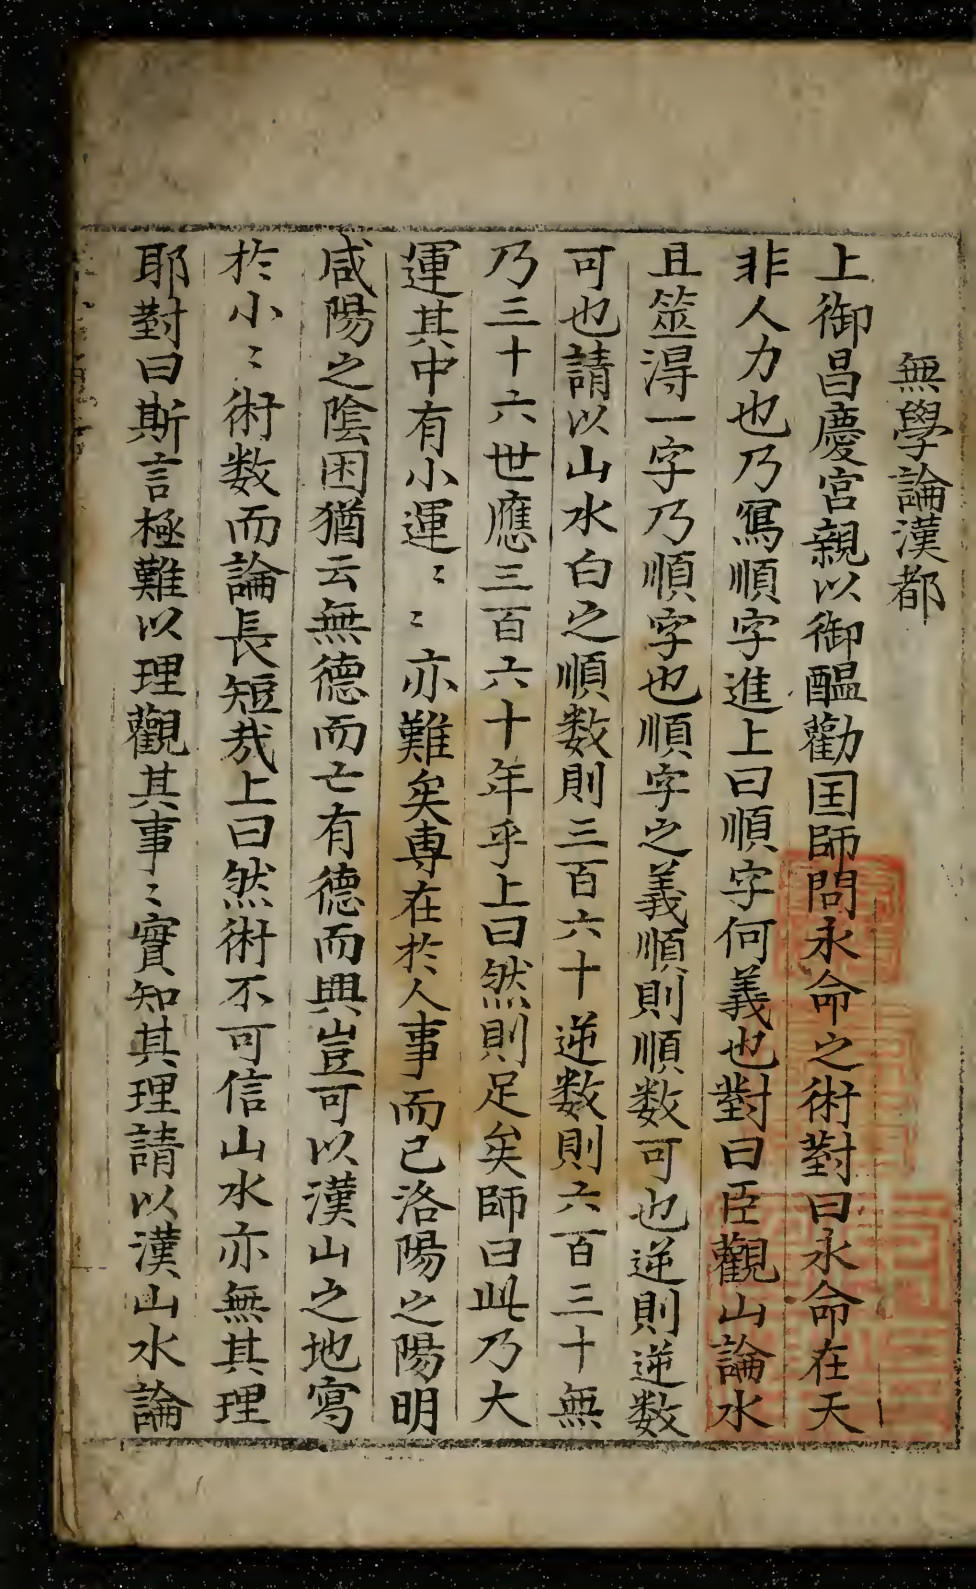 無學論漢都
上御昌慶宮親以御醞勸囯師問永命之術對曰永命在天
非人力也乃寫順字進上曰順字何義也對曰臣觀山論水
且筮淂一字乃順字也順字之義順則順数可也逆則逆数
可也請以山水白之順数則三百六十逆数則六百三十無
乃三十六世應三百六十年乎上曰然則足矣師曰此乃大
運其中有小運〻〻亦難矣專在於人事而已洛陽之陽明
咸陽之陰困猶云無德而亡有德而興豈可以漢山之地寓
於小〻術数而論長短㦲上曰然術不可信山水亦無其理
耶對曰斯言極難以理觀其事〻實知其理請以漢山水論